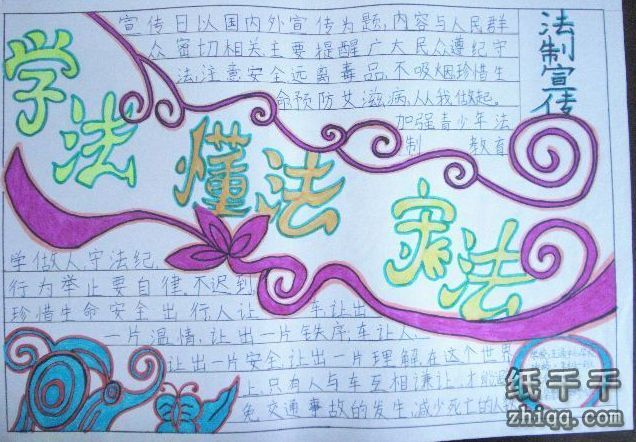 宣传日以国内外宣传为题,内容与人民群
众密切相关主要提醒广大民众遵纪守
法,注意安全远离毒品,不吸烟珍惜生
命预防艾滋病,从我做起。
加强青少年法
制 教育
法制宣传
学法
懂法
守法
学做人,守法纪,
行为举止要自律,不迟到
珍惜生命安全出行,人让 车,让出
一片温情,让出一片铁序,车让人,
让出一片安全让出一片理解,在这个世界
上,只有人与车互相谦让,才能
免交通事故的发生,减少死亡的人
纸千千
zhiqq.com